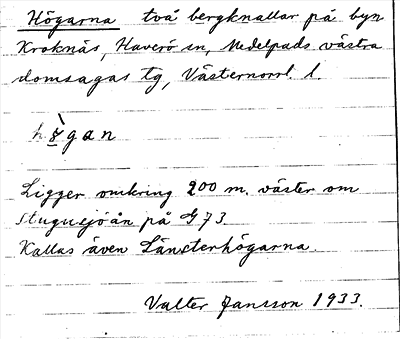 Högarna två bergknallar på byn
Kroknäs, Haverö sn, Medelpads västra
domsagas tg, Västernorrl. l.
Ligger omkring 200 m. väster om
Stugusjöån på G73.
Kallas även Länsterhögarna.
Valter Jansson 1933.